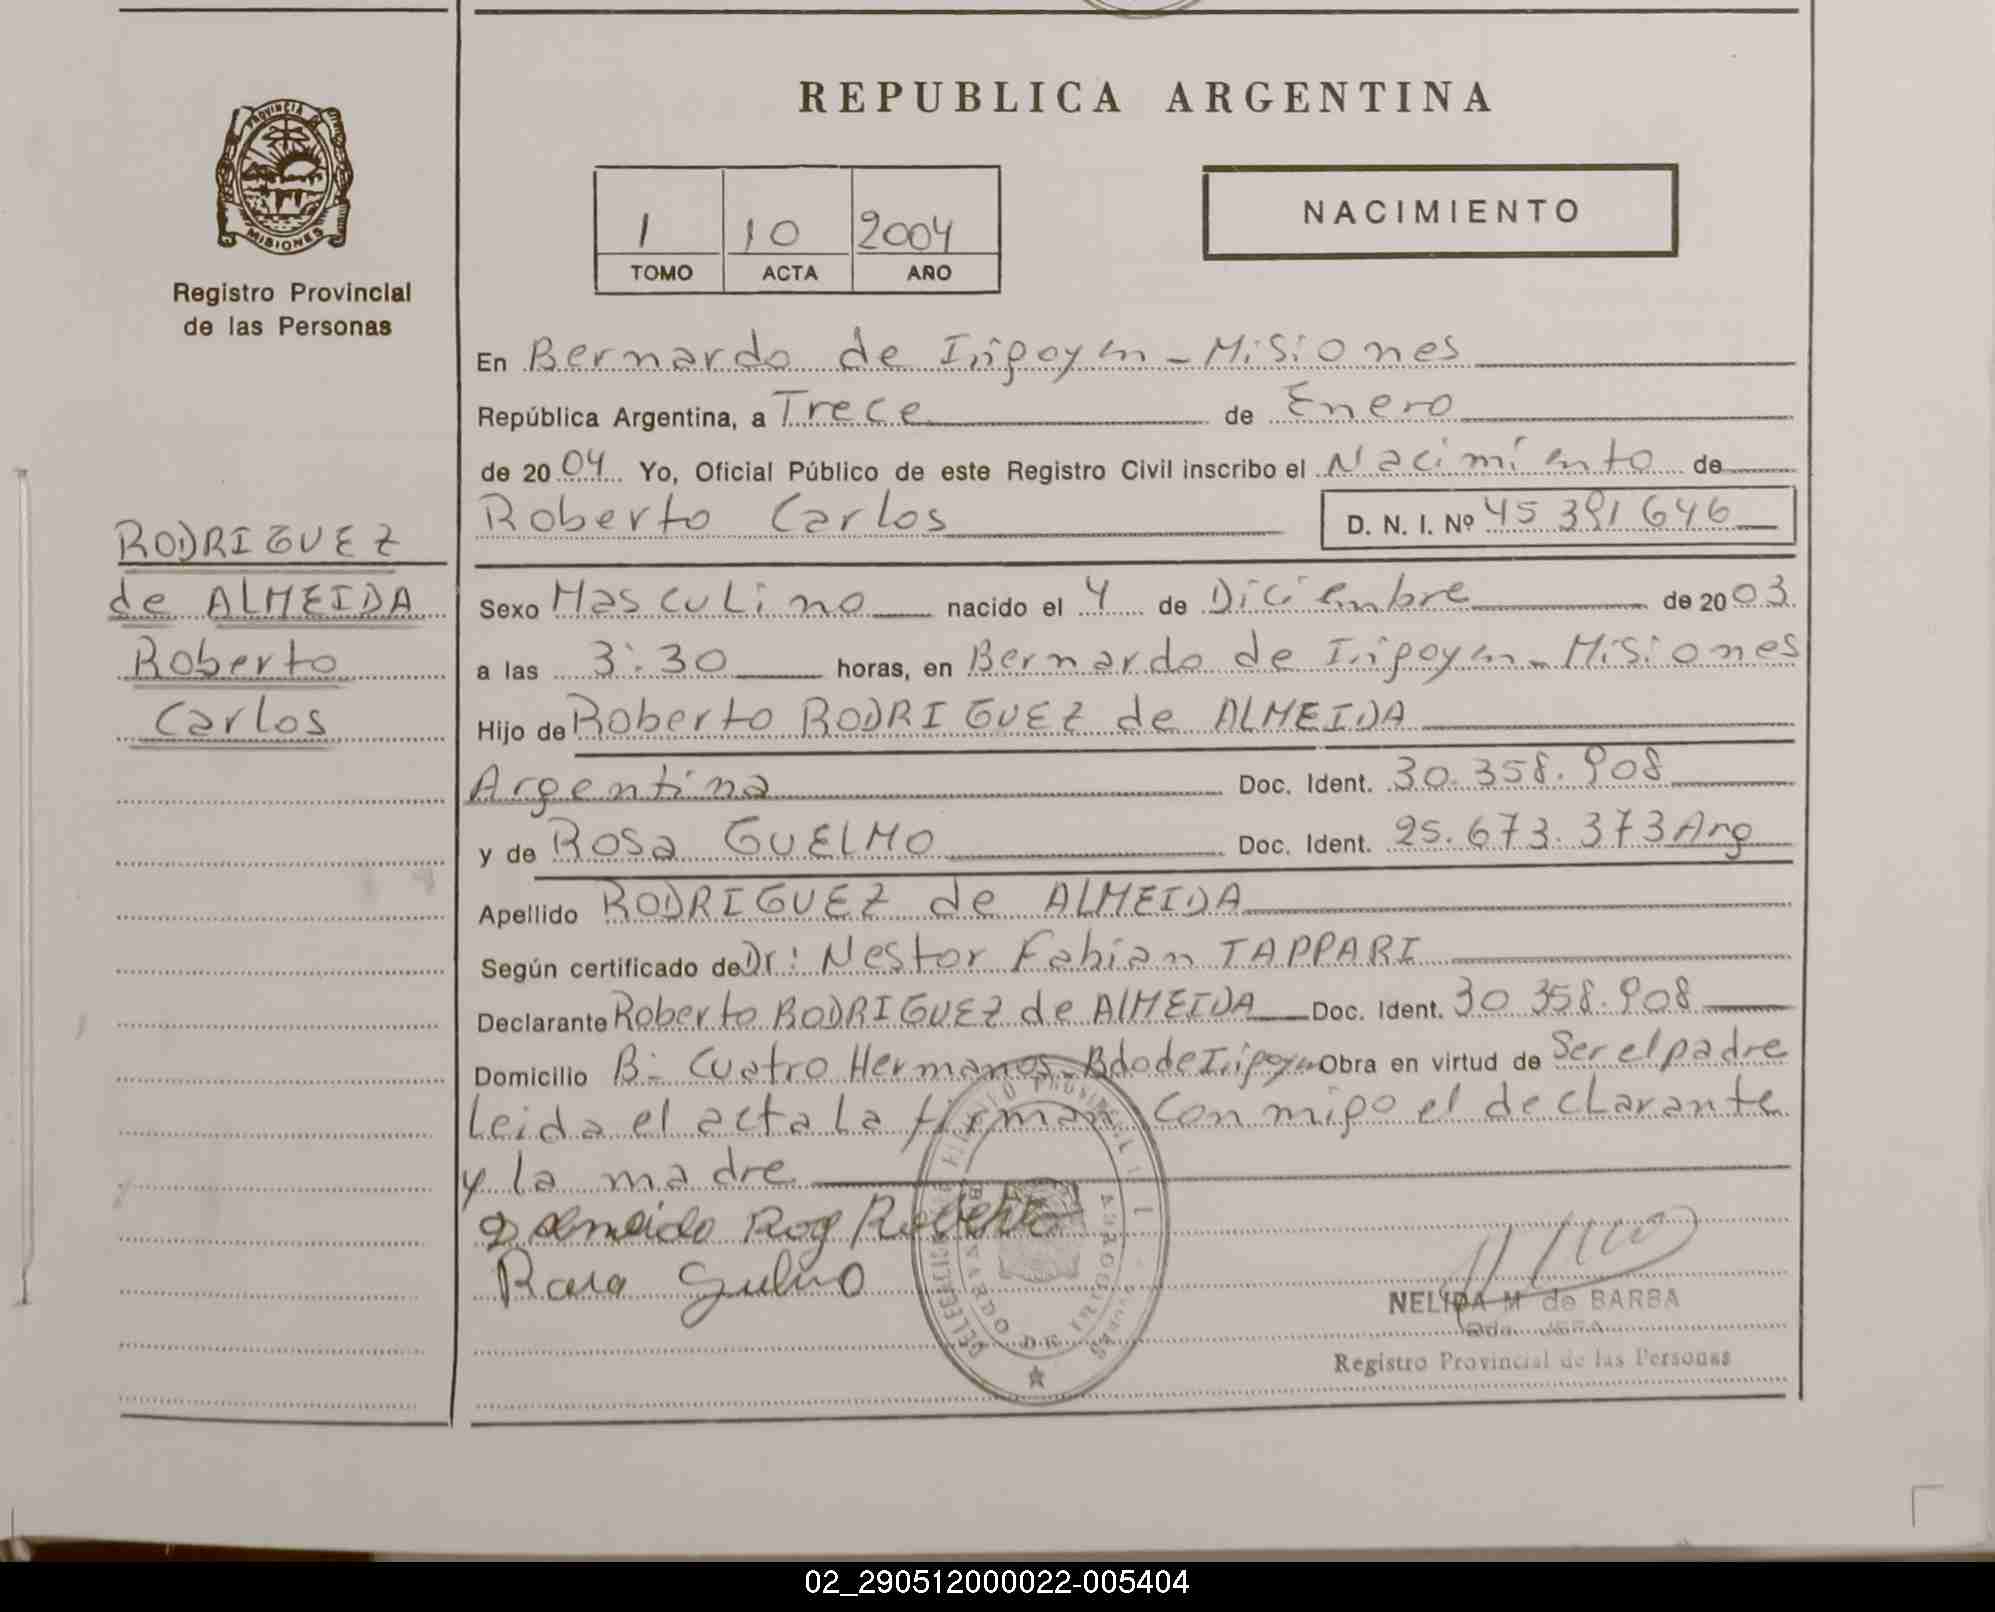 PROVINCIA DE
MISIONES
Registro Provincial
de las Personas
RODRIGUEZ
de ALMEIDA
Roberto
Carlos
REPUBLICA ARGENTINA
1 10 2004
TOMO ACTA AÑO
NACIMIENTO
En Bernardo de Irigoyen - Misiones
República Argentina, a Trece de Enero
de 2004 Yo, Oficial Público de este Registro Civil inscribo el Nacimiento de
Roberto Carlos D. N. I. Nº 45 391 646
Sexo Masculino nacido el 4 de Diciembre de 2003
a las 3:30 horas, en Bernardo de Irigoyen - Misiones
Hijo de Roberto RODRIGUEZ de ALMEIDA
Argentina Doc. Ident. 30.358.908
y de Rosa GUELMO Doc. Ident. 25.673.373 Arg
Apellido RODRIGUEZ de ALMEIDA
Según certificado de Dr: Nestor Fabian TAPPARI
Declarante Roberto RODRIGUEZ de ALMEIDA Doc. Ident. 30 358.908
Domicilio B: Cuatro Hermanos - Bdo de Irigoyen Obra en virtud de Ser el padre
Leida el acta La firman Conmigo el declarante
y la madre
Roberto
Rosa
BERNARDO DE IRIGOYEN
NELIDA M de BARBA
Registro Provincial de las Personas
02_290512000022-005404